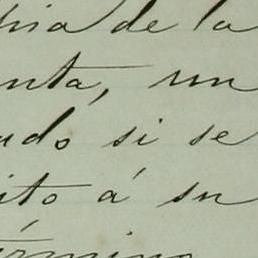 hia de la
nta, un
ado si se
ito á su
término